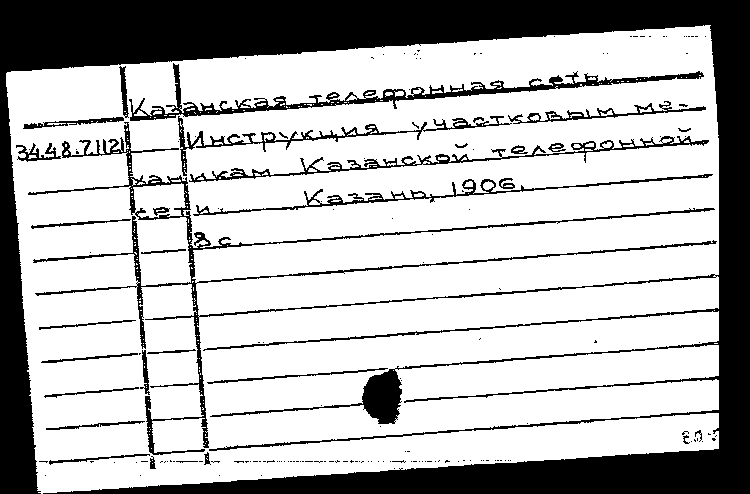 Казанская телефонная сеть.
34.48.7.1121 Инструкция участковым ме-
ханикам Казанской телефонной
сети. Казань, 1906.
8 с.